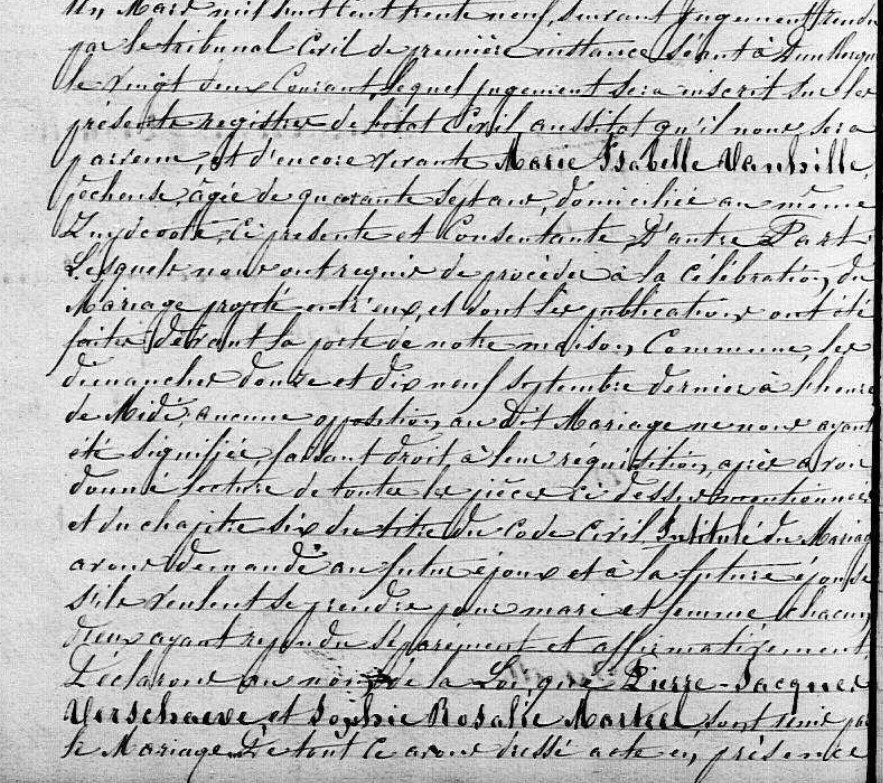 un Mars mil huit cent trente neuf, suivant Jugement rendu
par le tribunal Civil de première instance séant à Dunkerque
le vingt deux Courant, lequel jugement sera inscrit sur les
présents registres de l'état Civil aussitot qu'il nous sera
parvenu, et d'encore vivante Marie Isabelle Vanhille,
pêcheuse, âgée de quarante sept ans, domiciliée au même
Zuydcoote, Ci présente et Consentante, D'autre Part.
Lesquels nous ont requis de procéder à la Célébration du
Mariage projeté entr'eux, et dont les publications ont été
faites devant la porte de notre maison Commune, les
dimanches douze et dix neuf septembre dernier à l'heure
de Midi, aucune opposition au dit Mariage ne nous ayant
été signifiée, faisant droit à leur réquisition, après avoir
donné lecture de toutes les pièces ci dessus mentionnées
et du chapitre six du titre du Code Civil, Intitulé du Mariage
avons demandé au futur époux et à la future épouse
s'ils veulent se prendre pour mari et femme, chacun
d'eux ayant répondu séparément et affirmativement
Déclarons au nom de la Loi, que Pierre-Jacques
Verschaeve et Sophie Rosalie Markel, sont unis par
le Mariage. De tout Ce avons dressé acte en présence